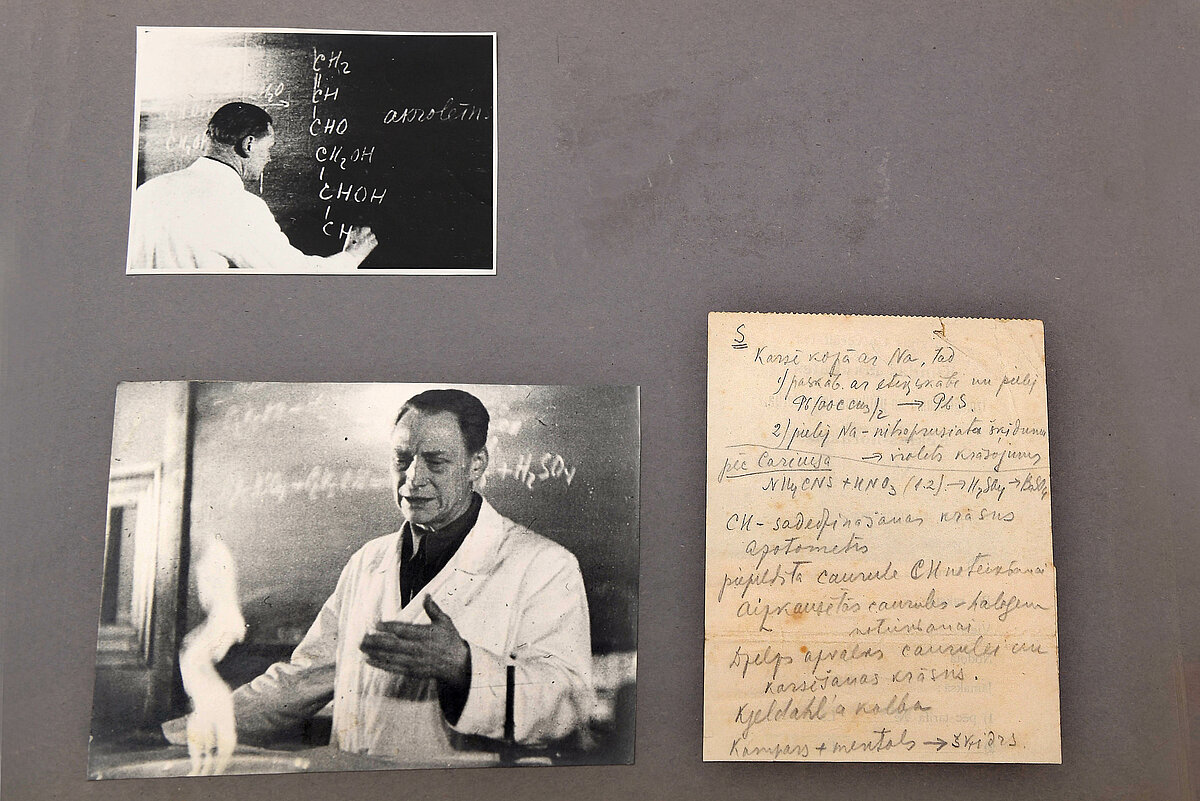 H₂O →
CH₂
||
CH
|
CHO
akroleīn
CH₃OH
CH₂OH
|
CHOH
|
CH
+ H₂SO₄
S
Karsē kopā ar Na, tad
1) paskāb. ar etiķskābi un pielej
Pb(OOCCH₃)₂ → PbS.
2) pielej Na-nitroprusiāta šķīdumu
pēc Cariusa → violets krāsojums
NH₄CNS + HNO₃ (1.2) → H₂SO₄ → BaSO₄
CH-sadedzināšanas krāsns
azotometrs
piepildīta caurule CH noteikšanai
Aizkausētās caurules - halogen
noteikšanai
Dzelzs apvalks caurulei un
karsēšanas krāsns.
Kjeldahl'a kolba
Kampars + mentols → šķidrs.